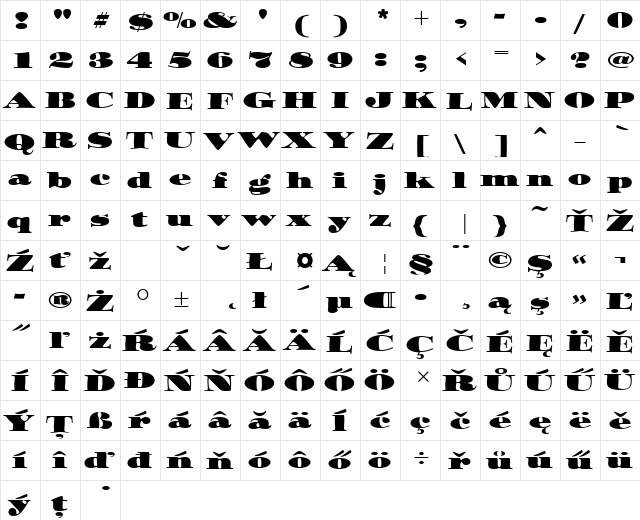 ! " # $ % & ' ( ) * + , - . / 0
1 2 3 4 5 6 7 8 9 : ; < = > ? @
A B C D E F G H I J K L M N O P
Q R S T U V W X Y Z [ \ ] ^ _ `
a b c d e f g h i j k l m n o p
q r s t u v w x y z { | } ~ Ť Ž
Ź ť ž ˇ ˘ Ł ¤ Ą ¦ § ¨ © Ş “ ¬
- ® Ż ° ± ˛ ł ´ µ ¶ · ¸ ą ş ” Ľ
˝ ľ ż Ŕ Á Â Ă Ä Ĺ Ć Ç Č É Ę Ë Ě
Í Î Ď Đ Ń Ň Ó Ô Ő Ö × Ř Ů Ú Ű Ü
Ý Ţ ß ŕ á â ă ä ĺ ć ç č é ę ë ě
í î ď đ ń ň ó ô ő ö ÷ ř ů ú ű ü
ý ţ ˙